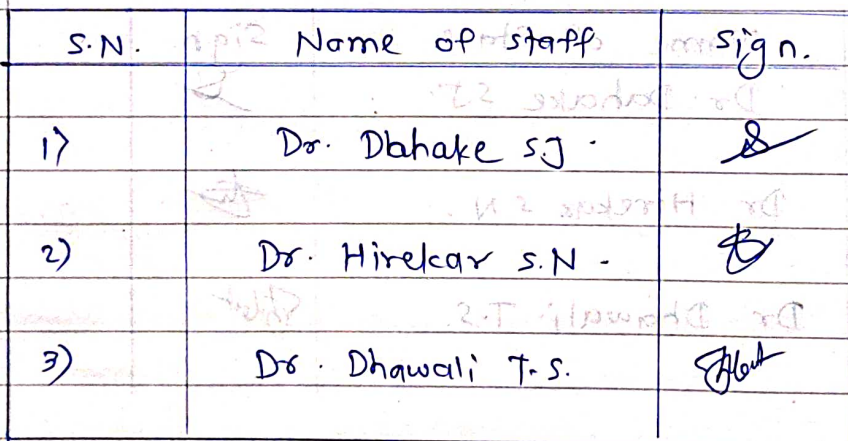 S.N. Name of staff Sign.
1) Dr. Dahake S.J.
2) Dr. Hirekar S.N.
3) Dr. Dhawali T.S.